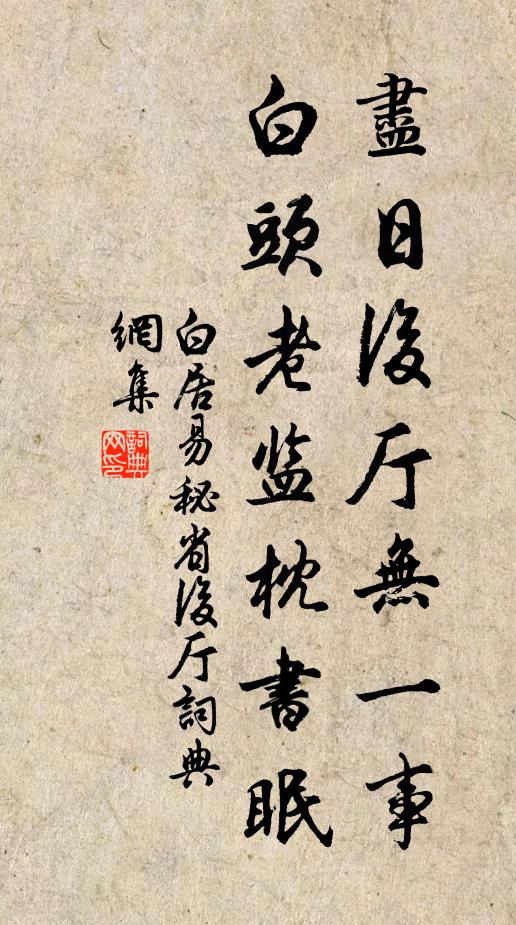 盡日後厅無一事
白頭老监枕書眠
白居易秘省後厅詞典
網集
詞典
网印